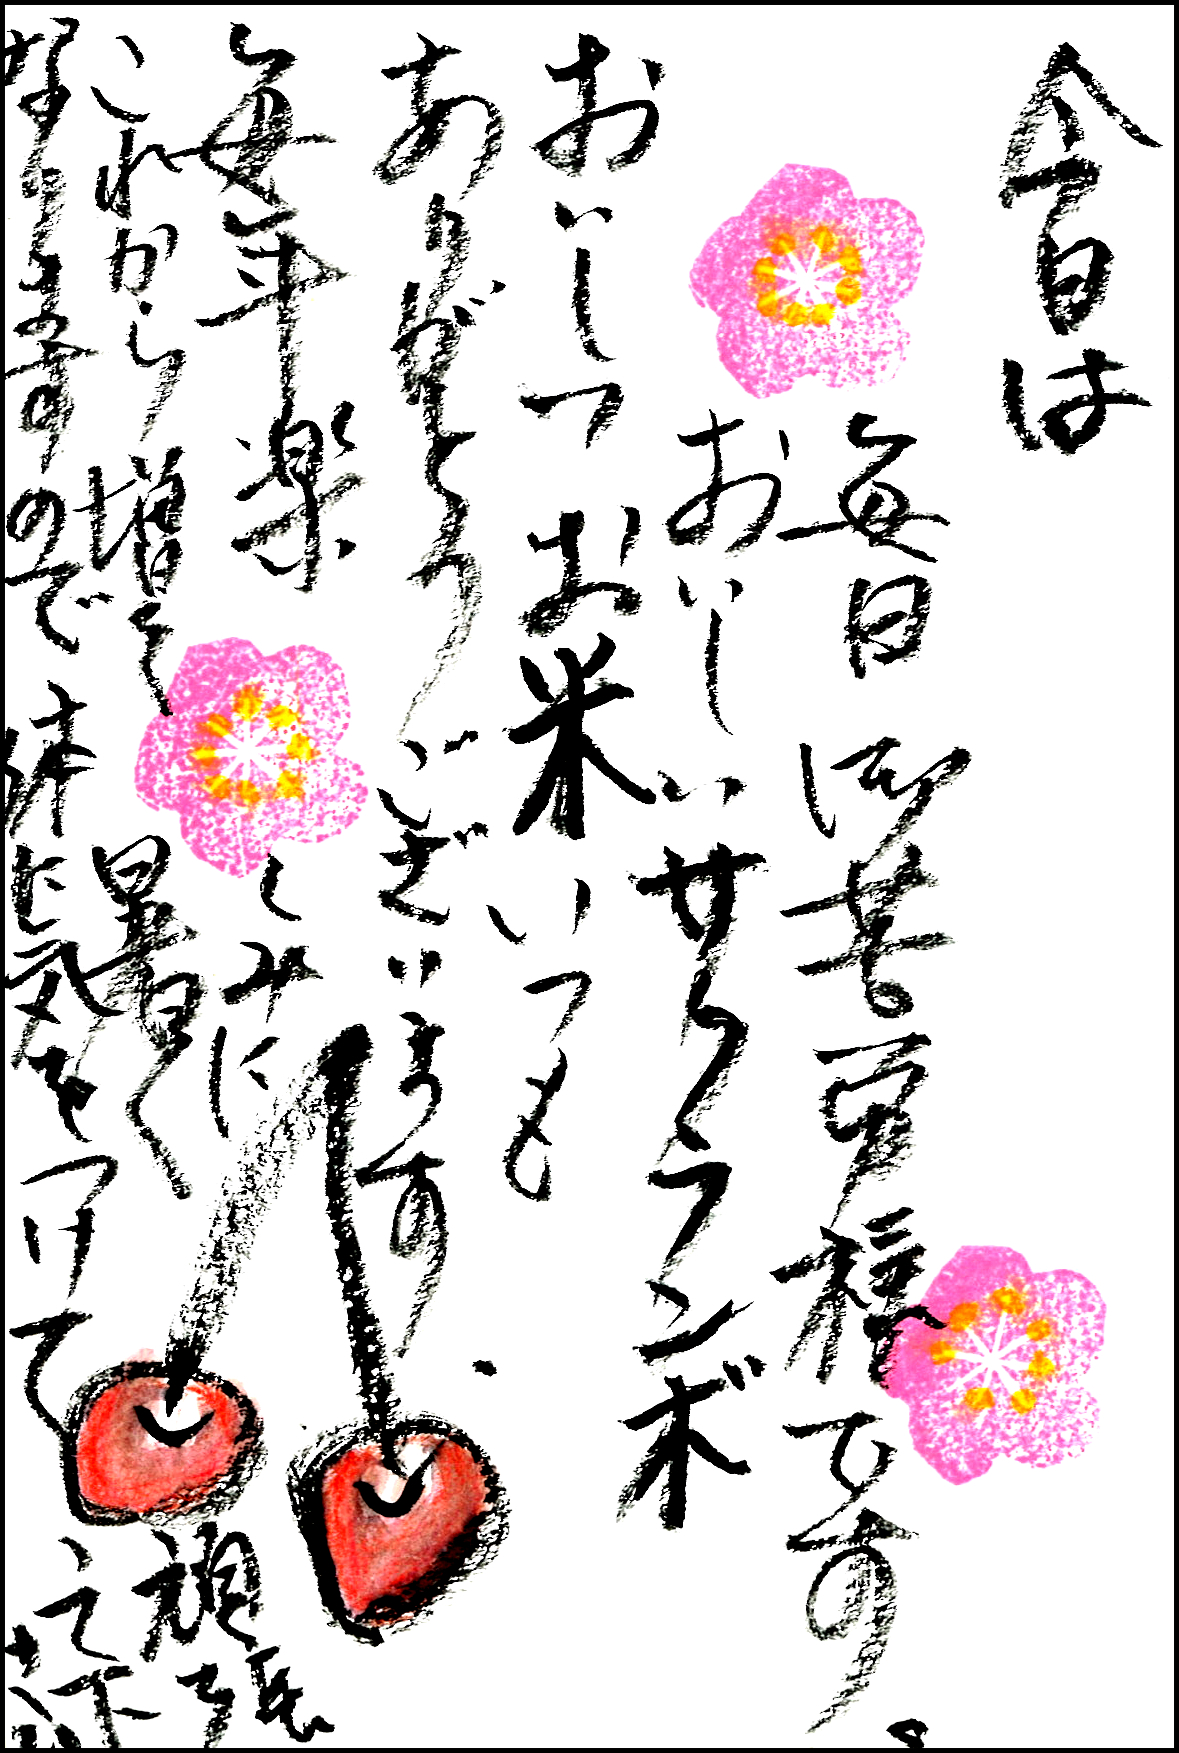 今日は
毎日 御苦労様です。
おいしいサクランボ
おいしい お米 いつも
ありがとうございます.
毎年楽しみに
これから増々暑く
なりますので 体に気をつけて
頑張って下さい